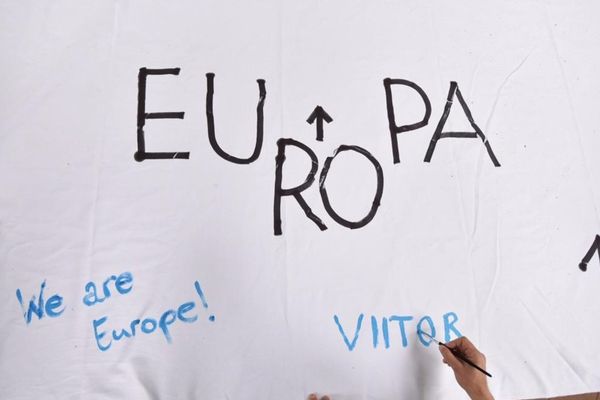 EU↑PA
RO
We are
Europe!
VIITOR